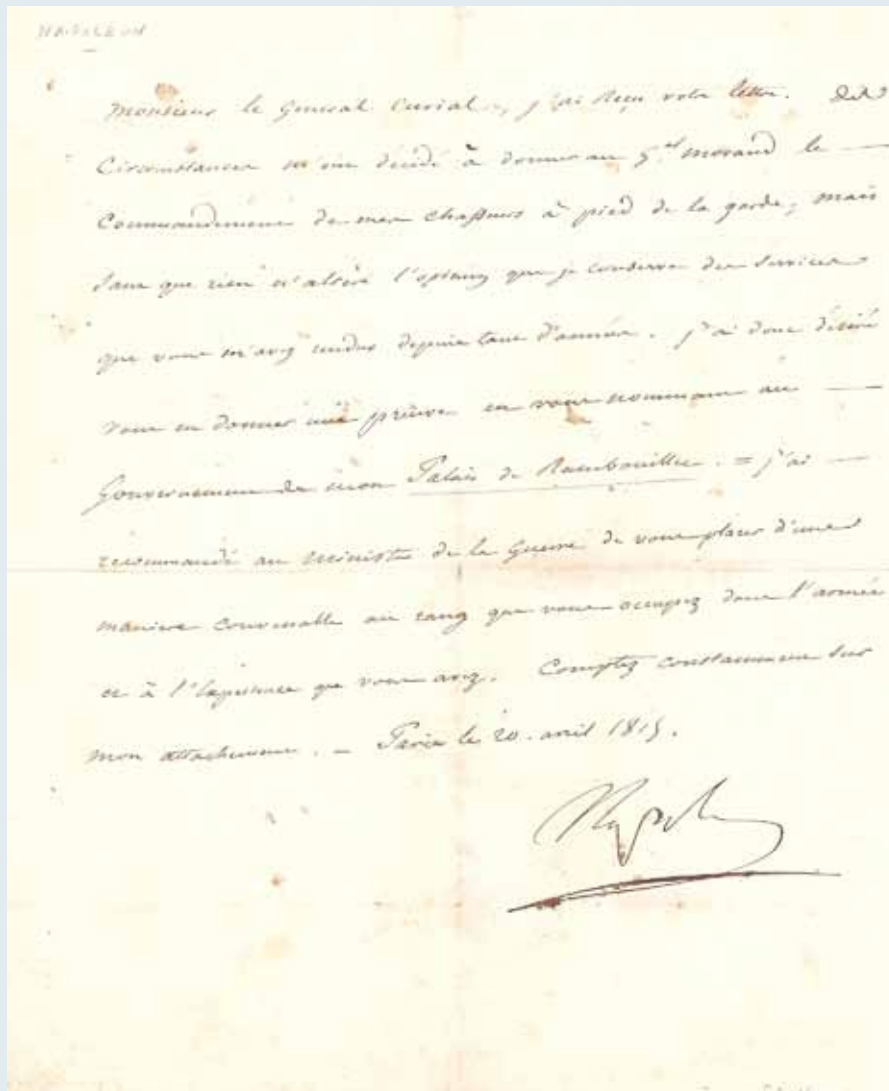 NAPOLÉON
Monsieur le General Curial, j'ai Reçu votre lettre. des
Circonstances m'ont décidé à donner au g.al morand le
Commandement de mes chasseurs à pied de la garde, mais
sans que rien n'altère l'opinion que je conserve des services
que vous m'avez rendus depuis tant d'années. j'ai donc désiré
vous en donner une preuve en vous nommant au
Gouvernement de mon Palais de Rambouillet. = j'ai
recommandé au Ministre de la Guerre de vous placer d'une
maniere convenable au rang que vous occupez dans l'armée
et à l'Experience que vous avez. Comptez constamment sur
mon attachement. - Paris le 20. avril 1815.
Napole